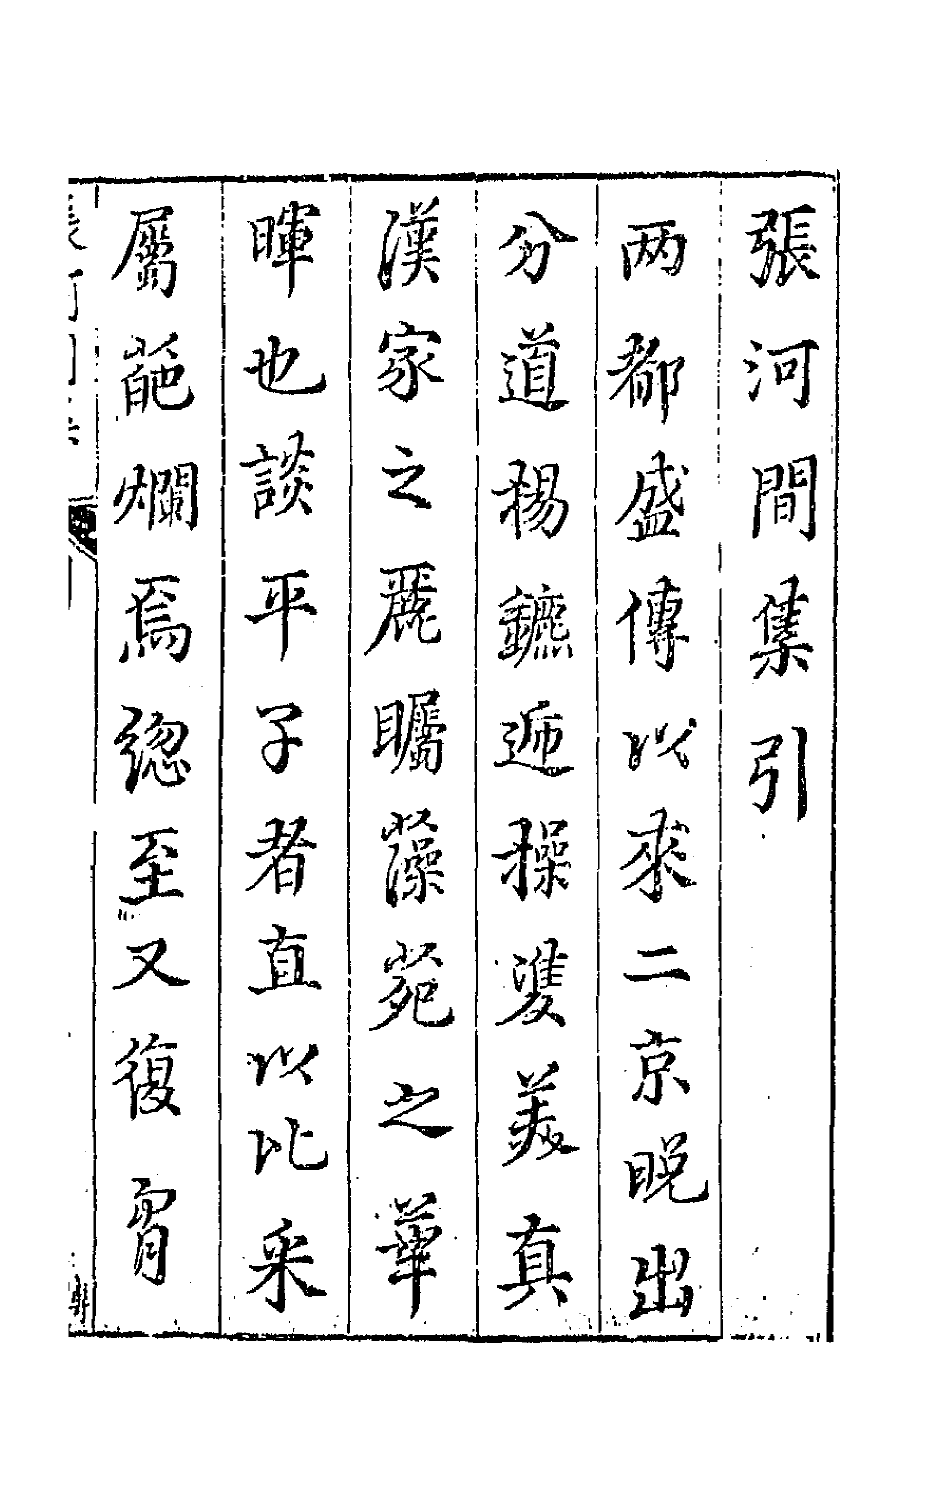 張河間集引
两都盛傳以來二京晚出
分道揚鑣遞操雙美真
漢家之麗矚藻苑之華
暉也談平子者直以比采
屬葩爛焉緫至又復